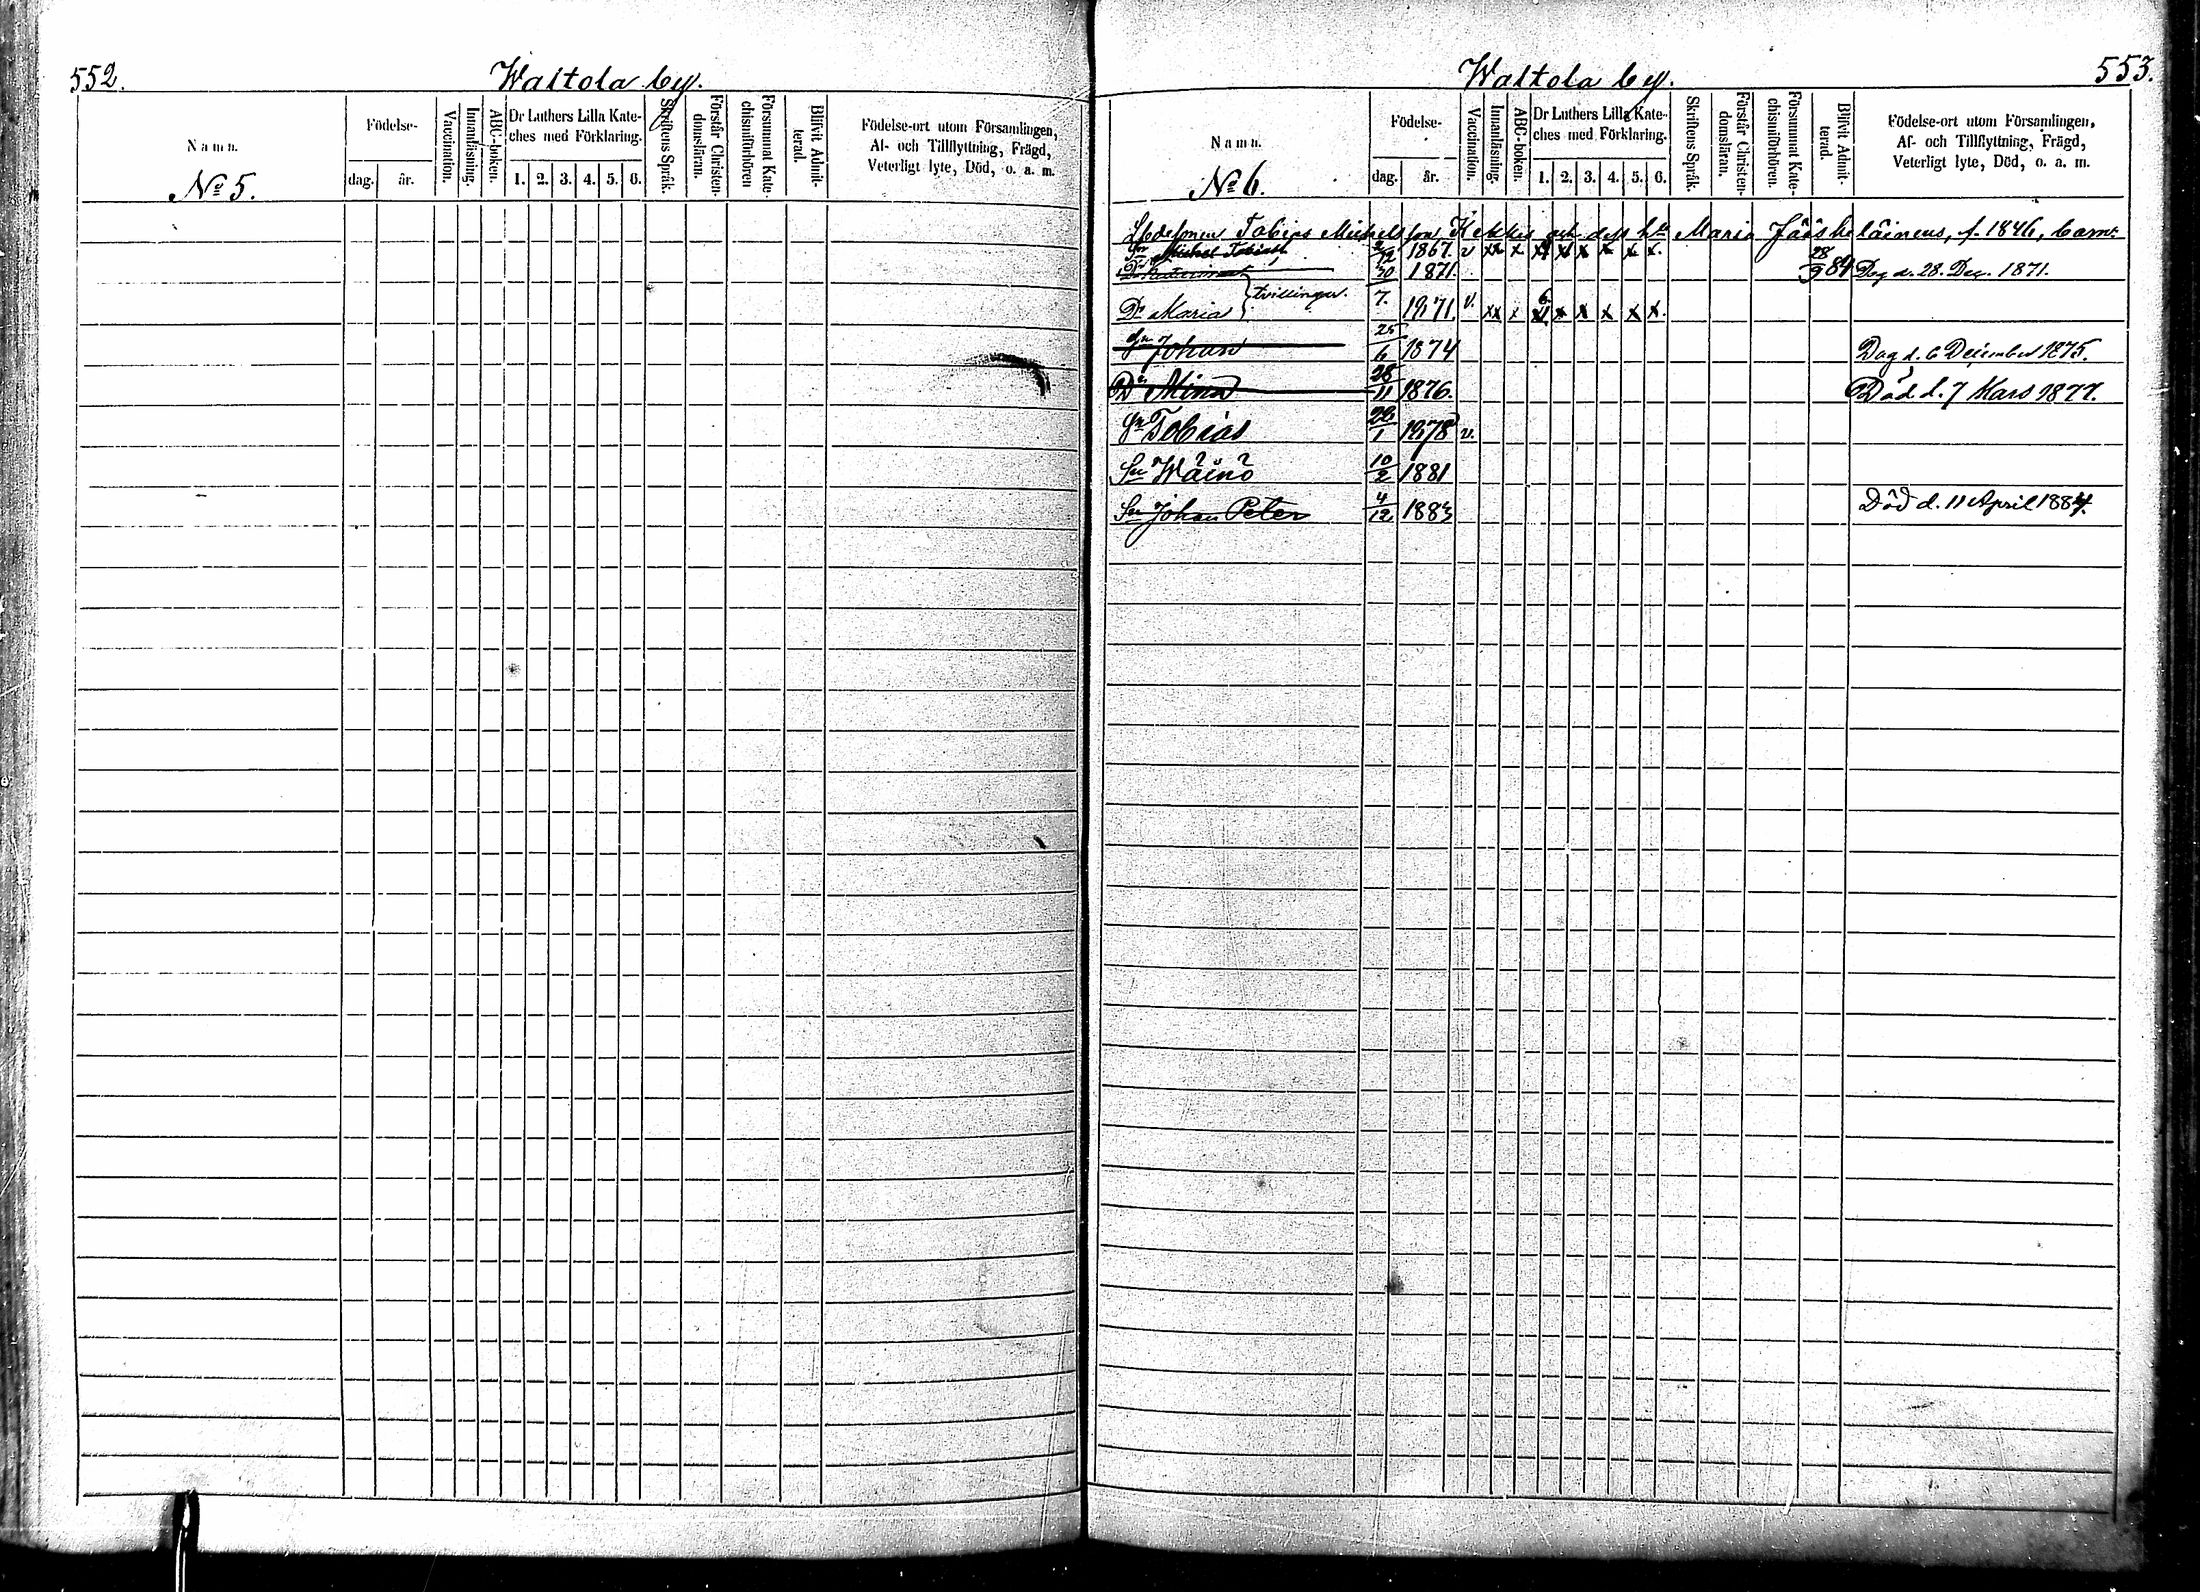 552.
Waltola by.
Namn.
No 5.
Födelse-
dag. år.
Vaccination.
Innanläsning.
ABC-boken.
Dr Luthers Lilla Kate-
ches med Förklaring.
1. 2. 3. 4. 5. 6.
Skriftens Språk.
Förstår Christen-
domsläran.
Försummat Kate-
chismiförhören
Blifvit Admit-
terad.
Födelse-ort utom Församlingen,
Af- och Tillflyttning, Frägd,
Veterligt lyte, Död, o. a. m.
Waltola by.
553.
Namn.
No 6.
Födelse-
dag. år.
Vaccination.
Innanläsning.
ABC-boken.
Dr Luthers Lilla Kate-
ches med Förklaring.
1. 2. 3. 4. 5. 6.
Skriftens Språk.
Förstår Christen-
domsläran.
Försummat Kate-
chismiförhören.
Blifvit Admit-
terad.
Födelse-ort utom Församlingen,
Af- och Tillflyttning, Frägd,
Veterligt lyte, Död, o. a. m.
Tobias Michelsson och dess Maria Jääskeläinens, f. 1846, barn:
Sn Michel Tobias 1867. v xx x x x x x x x. 28/9 84
Dr 1871. Dog d. 28. Dec. 1871.
tvillingar.
Dr Maria 7. 1871 v. xx x x x x x x x.
Sn Johan 25/6 1874 Dog d. 6 December 1875.
Dr Mina 28/11 1876. Död d. 7 Mars 1877.
Sn Tobias 1878 v.
Sn Wäinö 10/2 1881
Sn Johan Peter 4/12 1883 Död d. 11 April 1884.